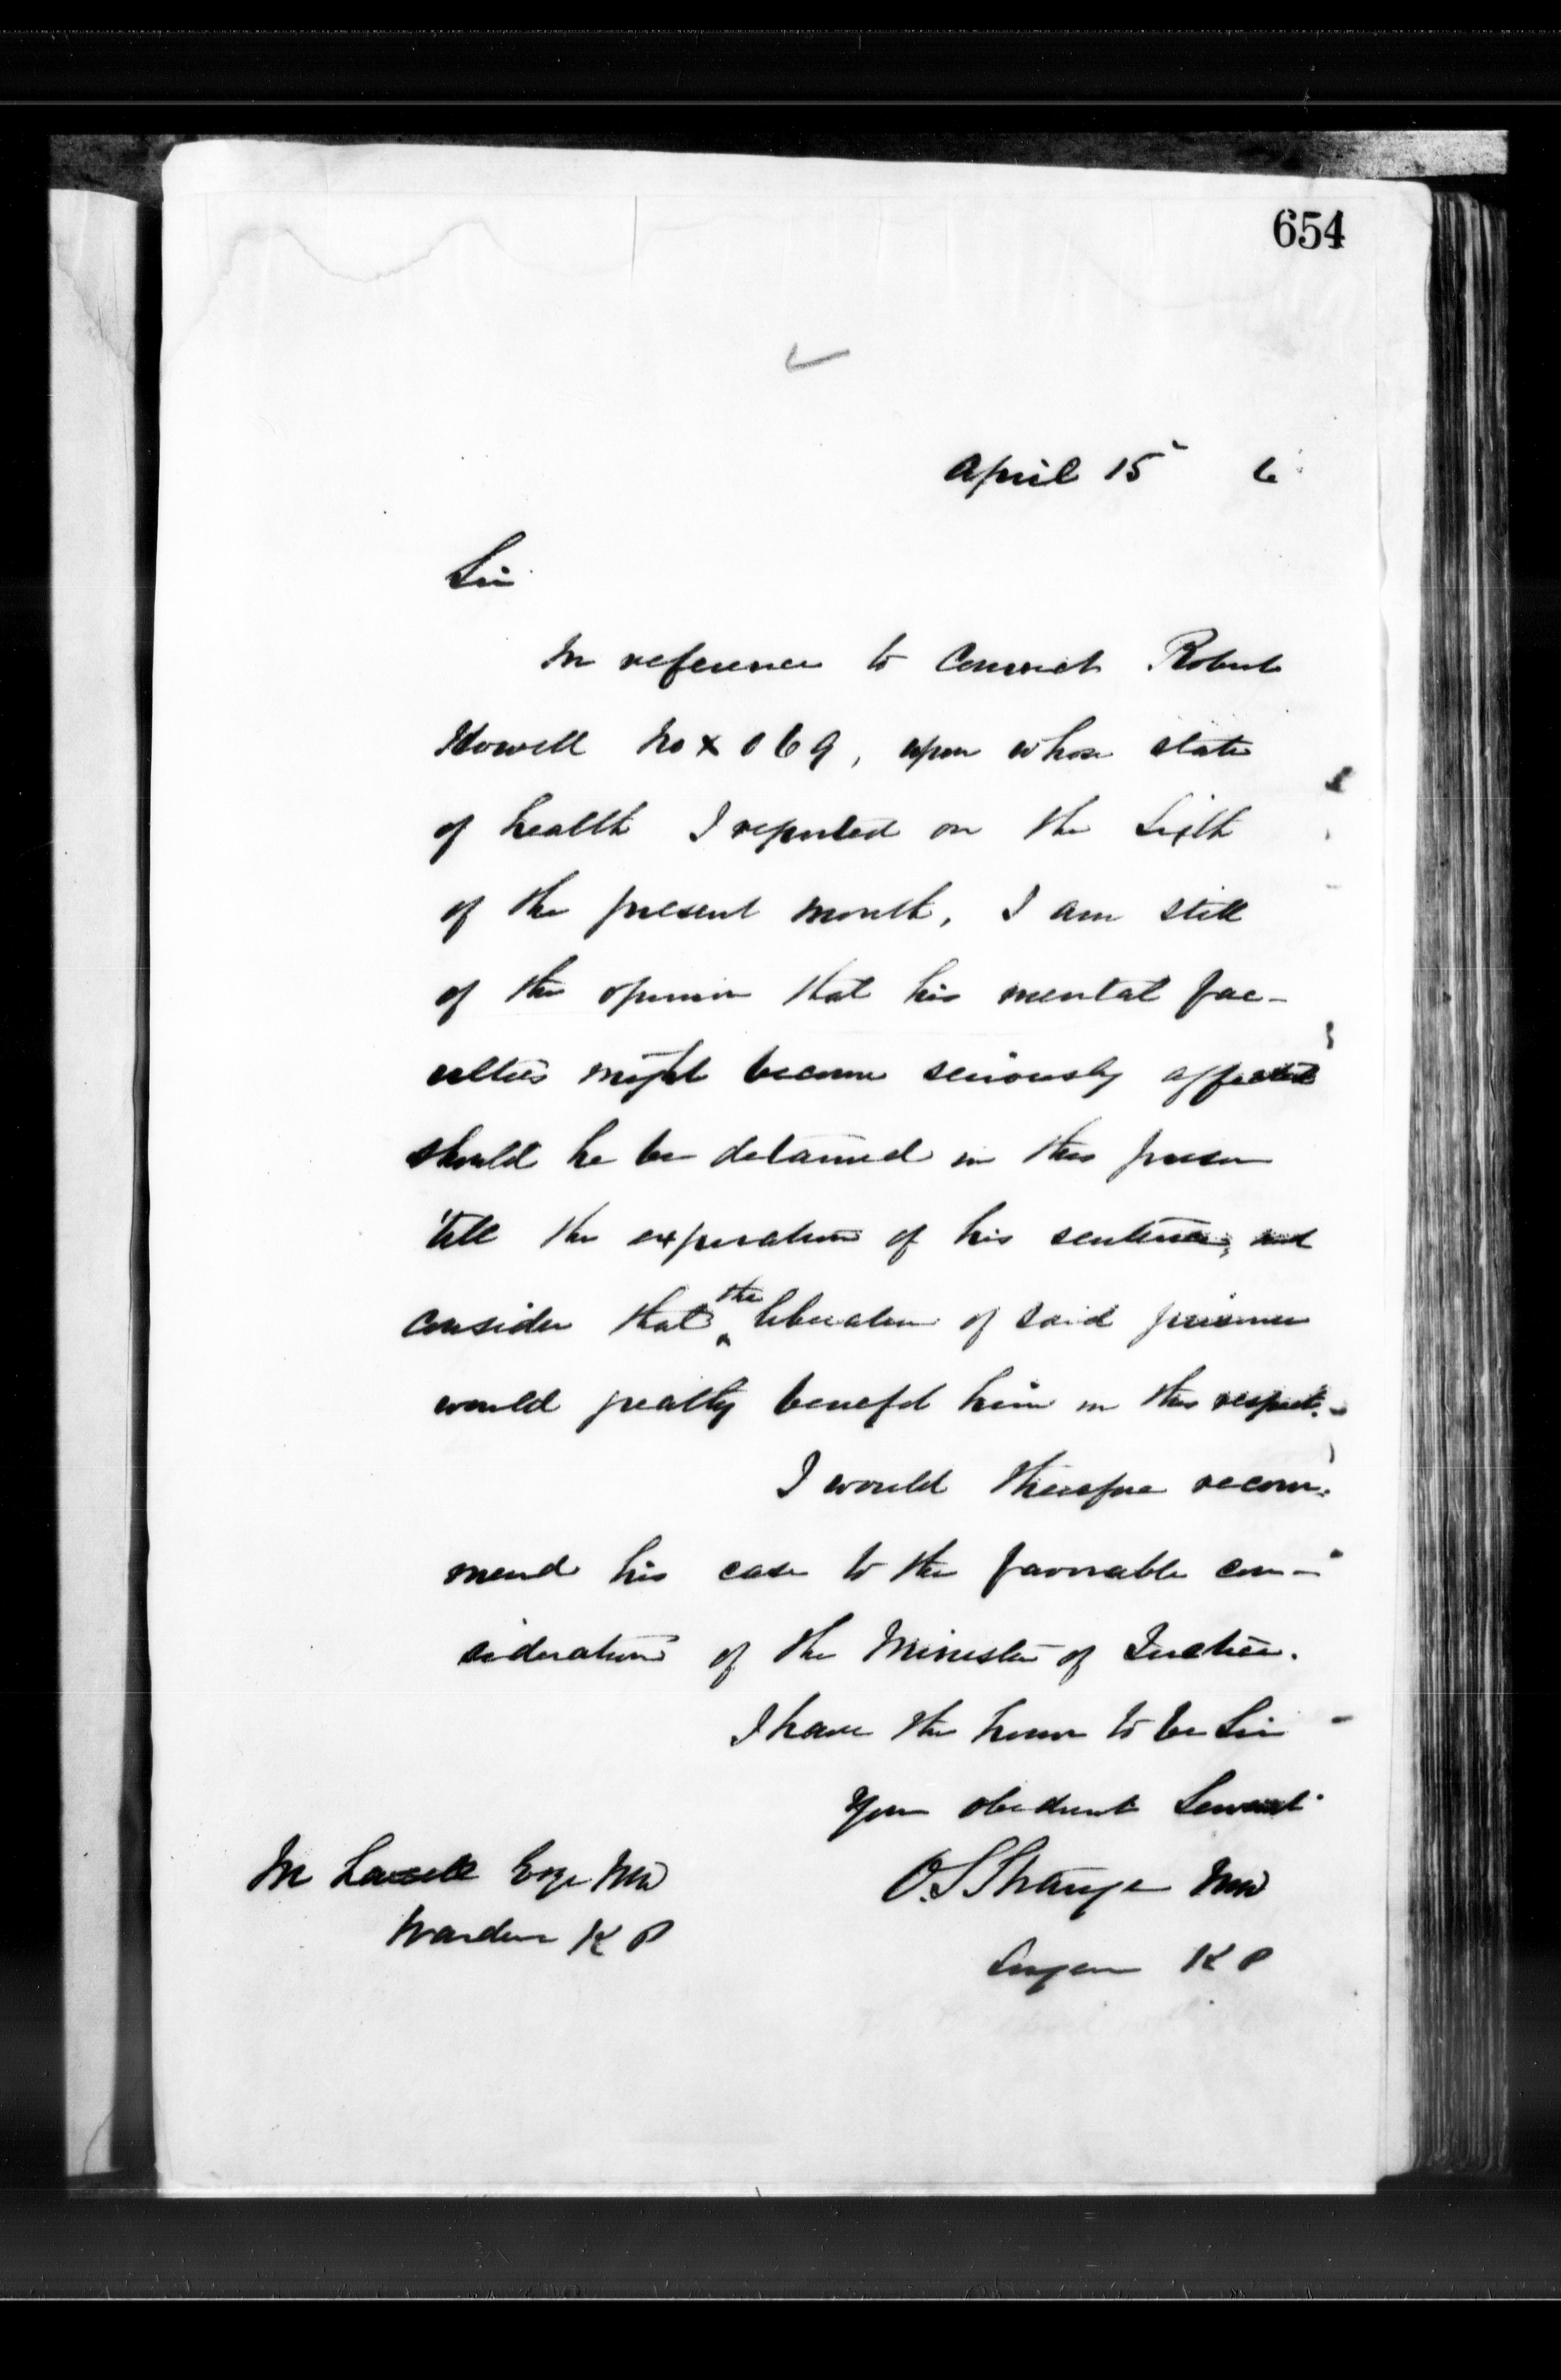 654
April 15 6
Sir
In reference to Convict Robert
Howell No x 069, upon whose state
of health I reported on the Sixth
of the present month, I am still
of the opinion that his mental fac-
ulties might become seriously affected
should he be detained in this prison
'till the expiration of his sentence, and
consider that the liberation of said prisoner
would greatly benefit him in this respect.
I would therefore recom-
mend his case to the favorable con-
sideration of the Minister of Justice.
I have the honor to be Sir
Your obedient Servant
O.S Strange MD
Surgeon K P
M Lavell Esqr MD
Warden K P